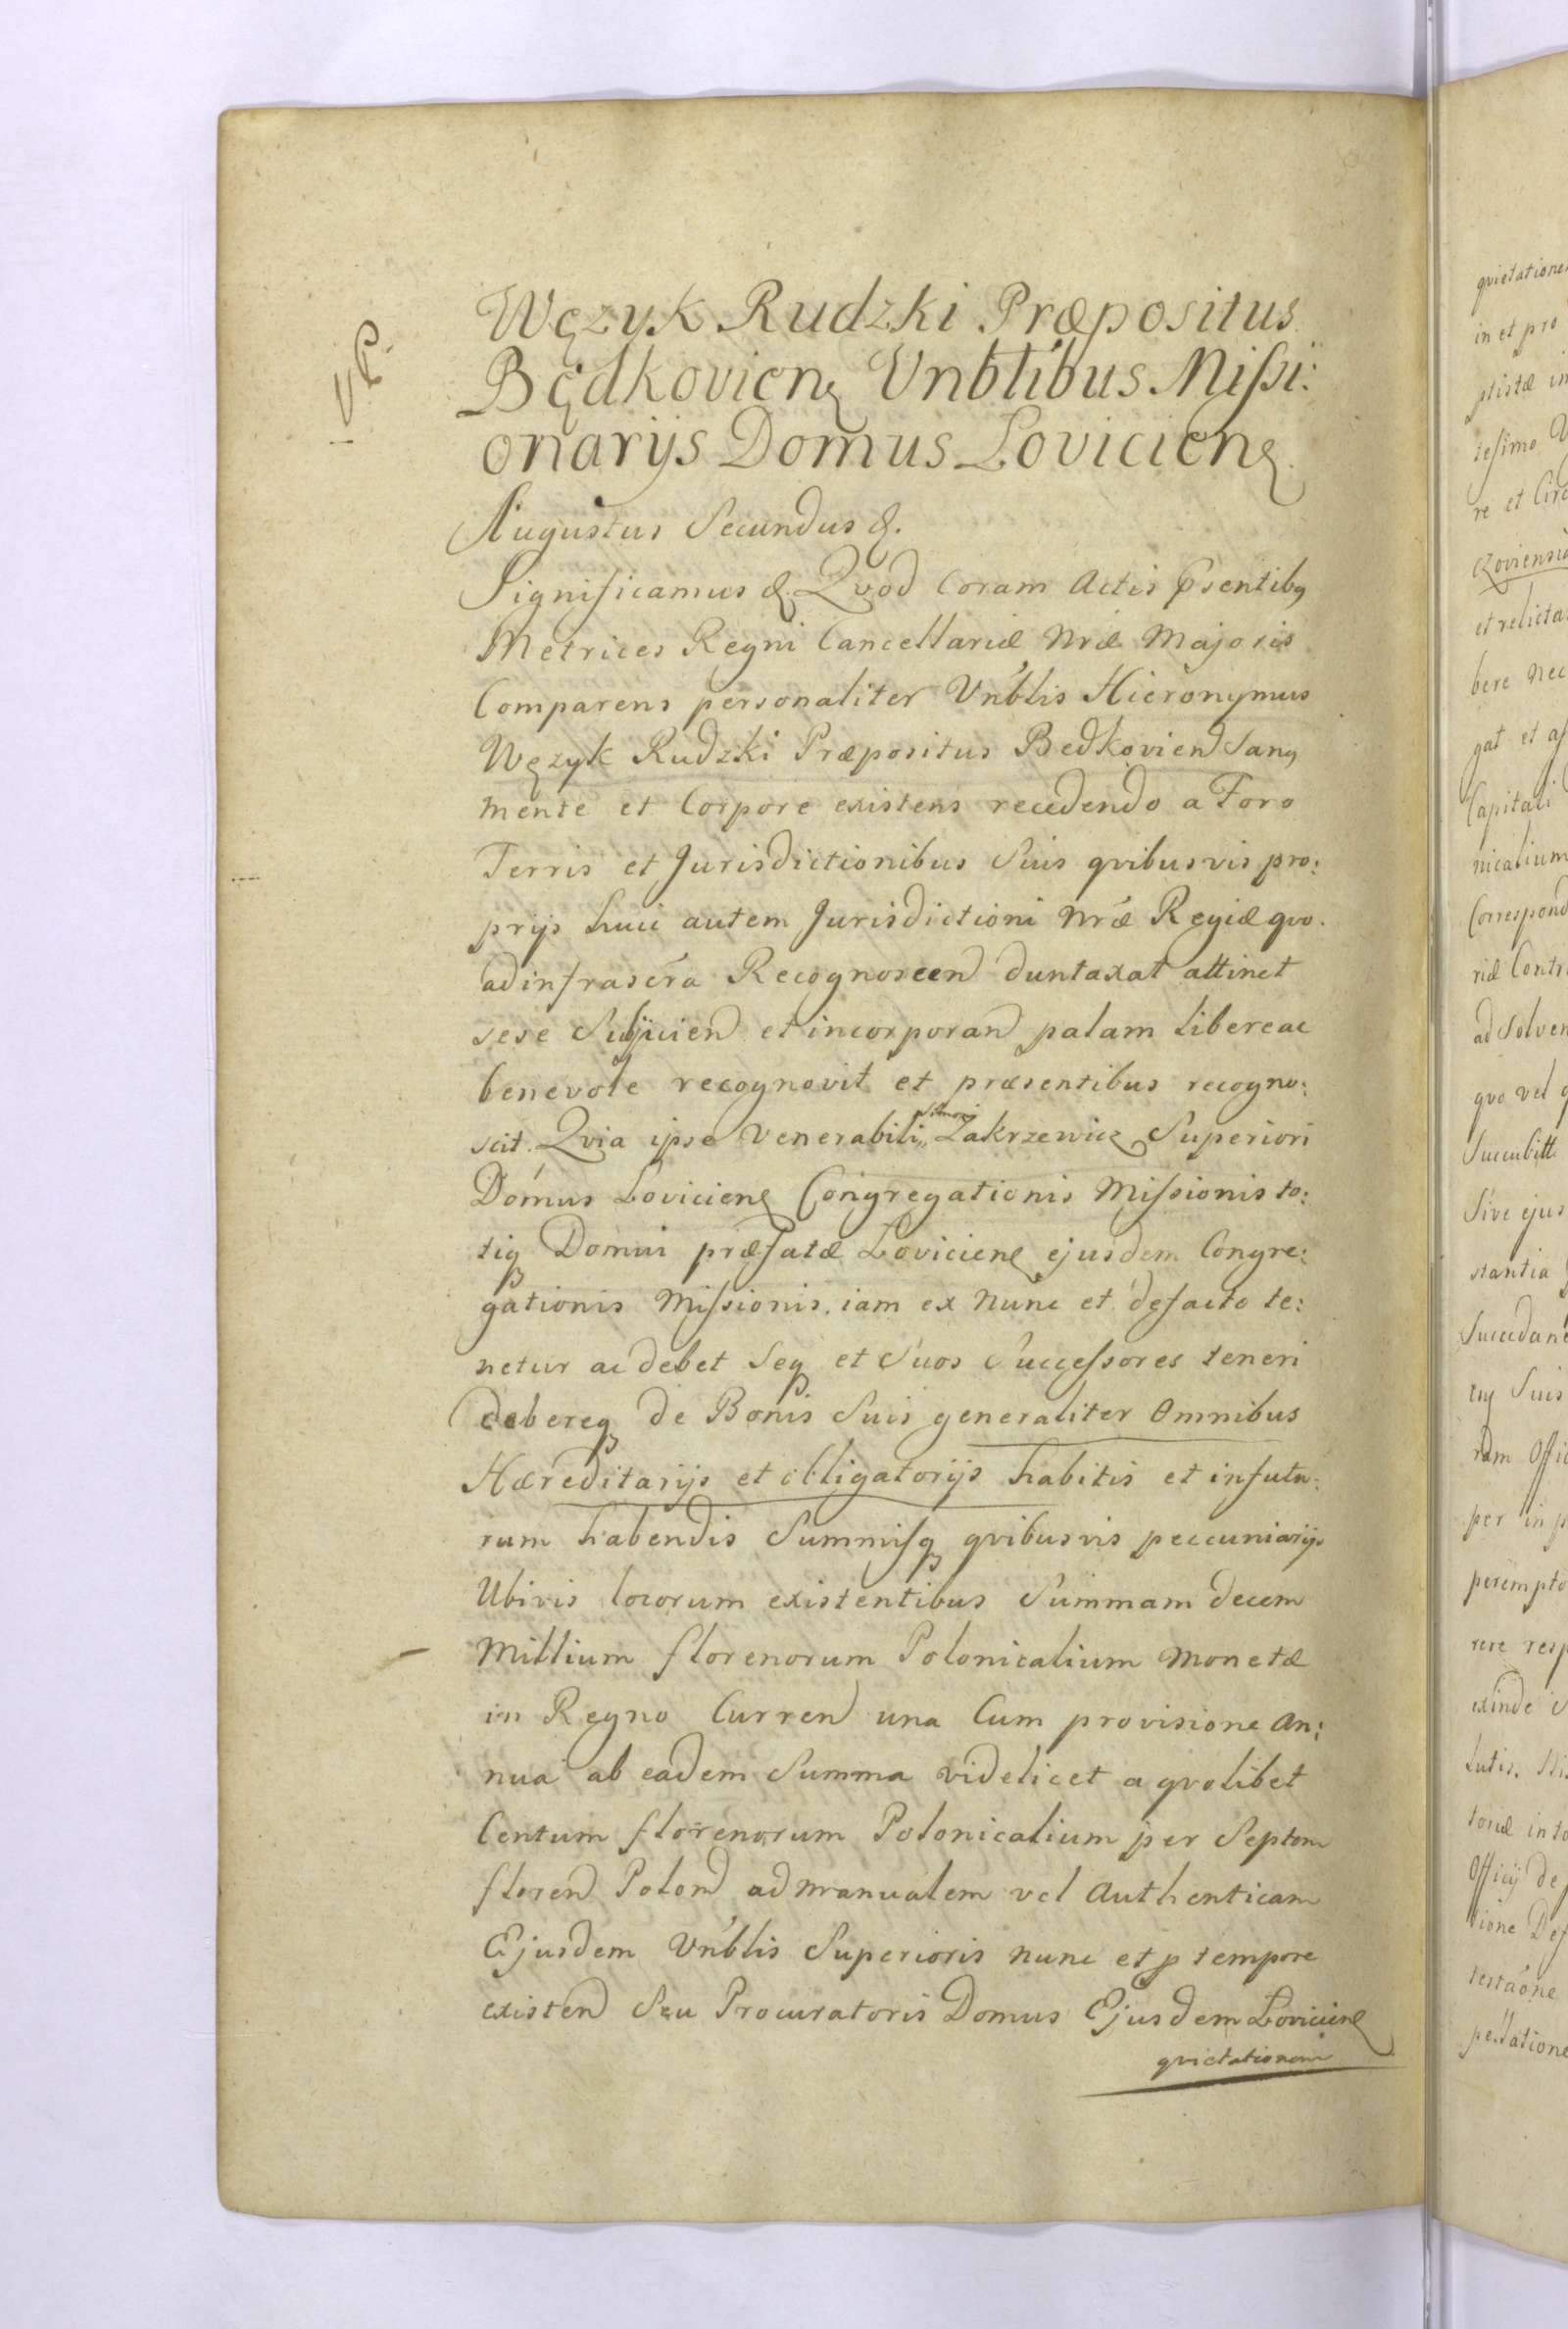 VP.
Węzyk Rudzki Præpositus
Będkovien Vnbtibus Missi:
onarijs Domus Lovicien
Augustus Secundus &.
Significamus &. Qvod Coram Actis Psentibq
Metrices Regni Cancellariæ Nræ Majoris
Comparens personaliter Vnblis Hieronymus
Węzyk Rudzki Præpositus Bedkovien Sang
mente et Corpore existens recedendo a Foro
Terris et Jurisdictionibus Suis qvibusvis pro:
prijs huic autem Jurisdictioni Nræ Regiæ qvo.
ad infrascra Recognoscen duntaxat attinet
sese Subjicien et incorporan palam libere ac
benevole recognovit et præsentibus recogno:
scit. Qvia ipse Venerabili Zakrzewicz Superiori
Domus Lovicien Congregationis Missionis to:
tiq Domui præfatæ Lovicien ejusdem Congre:
gationis Missionis. iam ex Nunc et defacto te:
netur ac debet Seq et Suos Successores teneri
debereq de Bonis Suis generaliter Omnibus
Hæreditarijs et obligatorijs habitis et in futu:
rum habendis Summisq qvibusvis peccuniarijs
Ubivis locorum existentibus Summam decem
Millium florenorum Polonicalium Monetæ
in Regno Curren una Cum provisione An:
nua ab eadem Summa videlicet a qvolibet
Centum florenorum Polonicalium per Septem
floren Polon ad manualem vel Authenticam
Ejusdem Vnblis Superioris nunc et p tempore
existen Seu Procuratoris Domus Ejusdem Lovicien
qvietationem
qvietatione
in et pro
ptistæ in
tesimo
re et Circ
czoviensi
et relicta
bere nec
gat et as
Capitali
nicalium
Correspond
riæ Contr
ad Solven
qvo vel
Succubitt
Sive ejus
stantia
Succedane
Suis
ram Offic
per in
perempto
rere resp
exinde
lutis.
toriæ in
Officij de
tione Def
testaone
pestatione